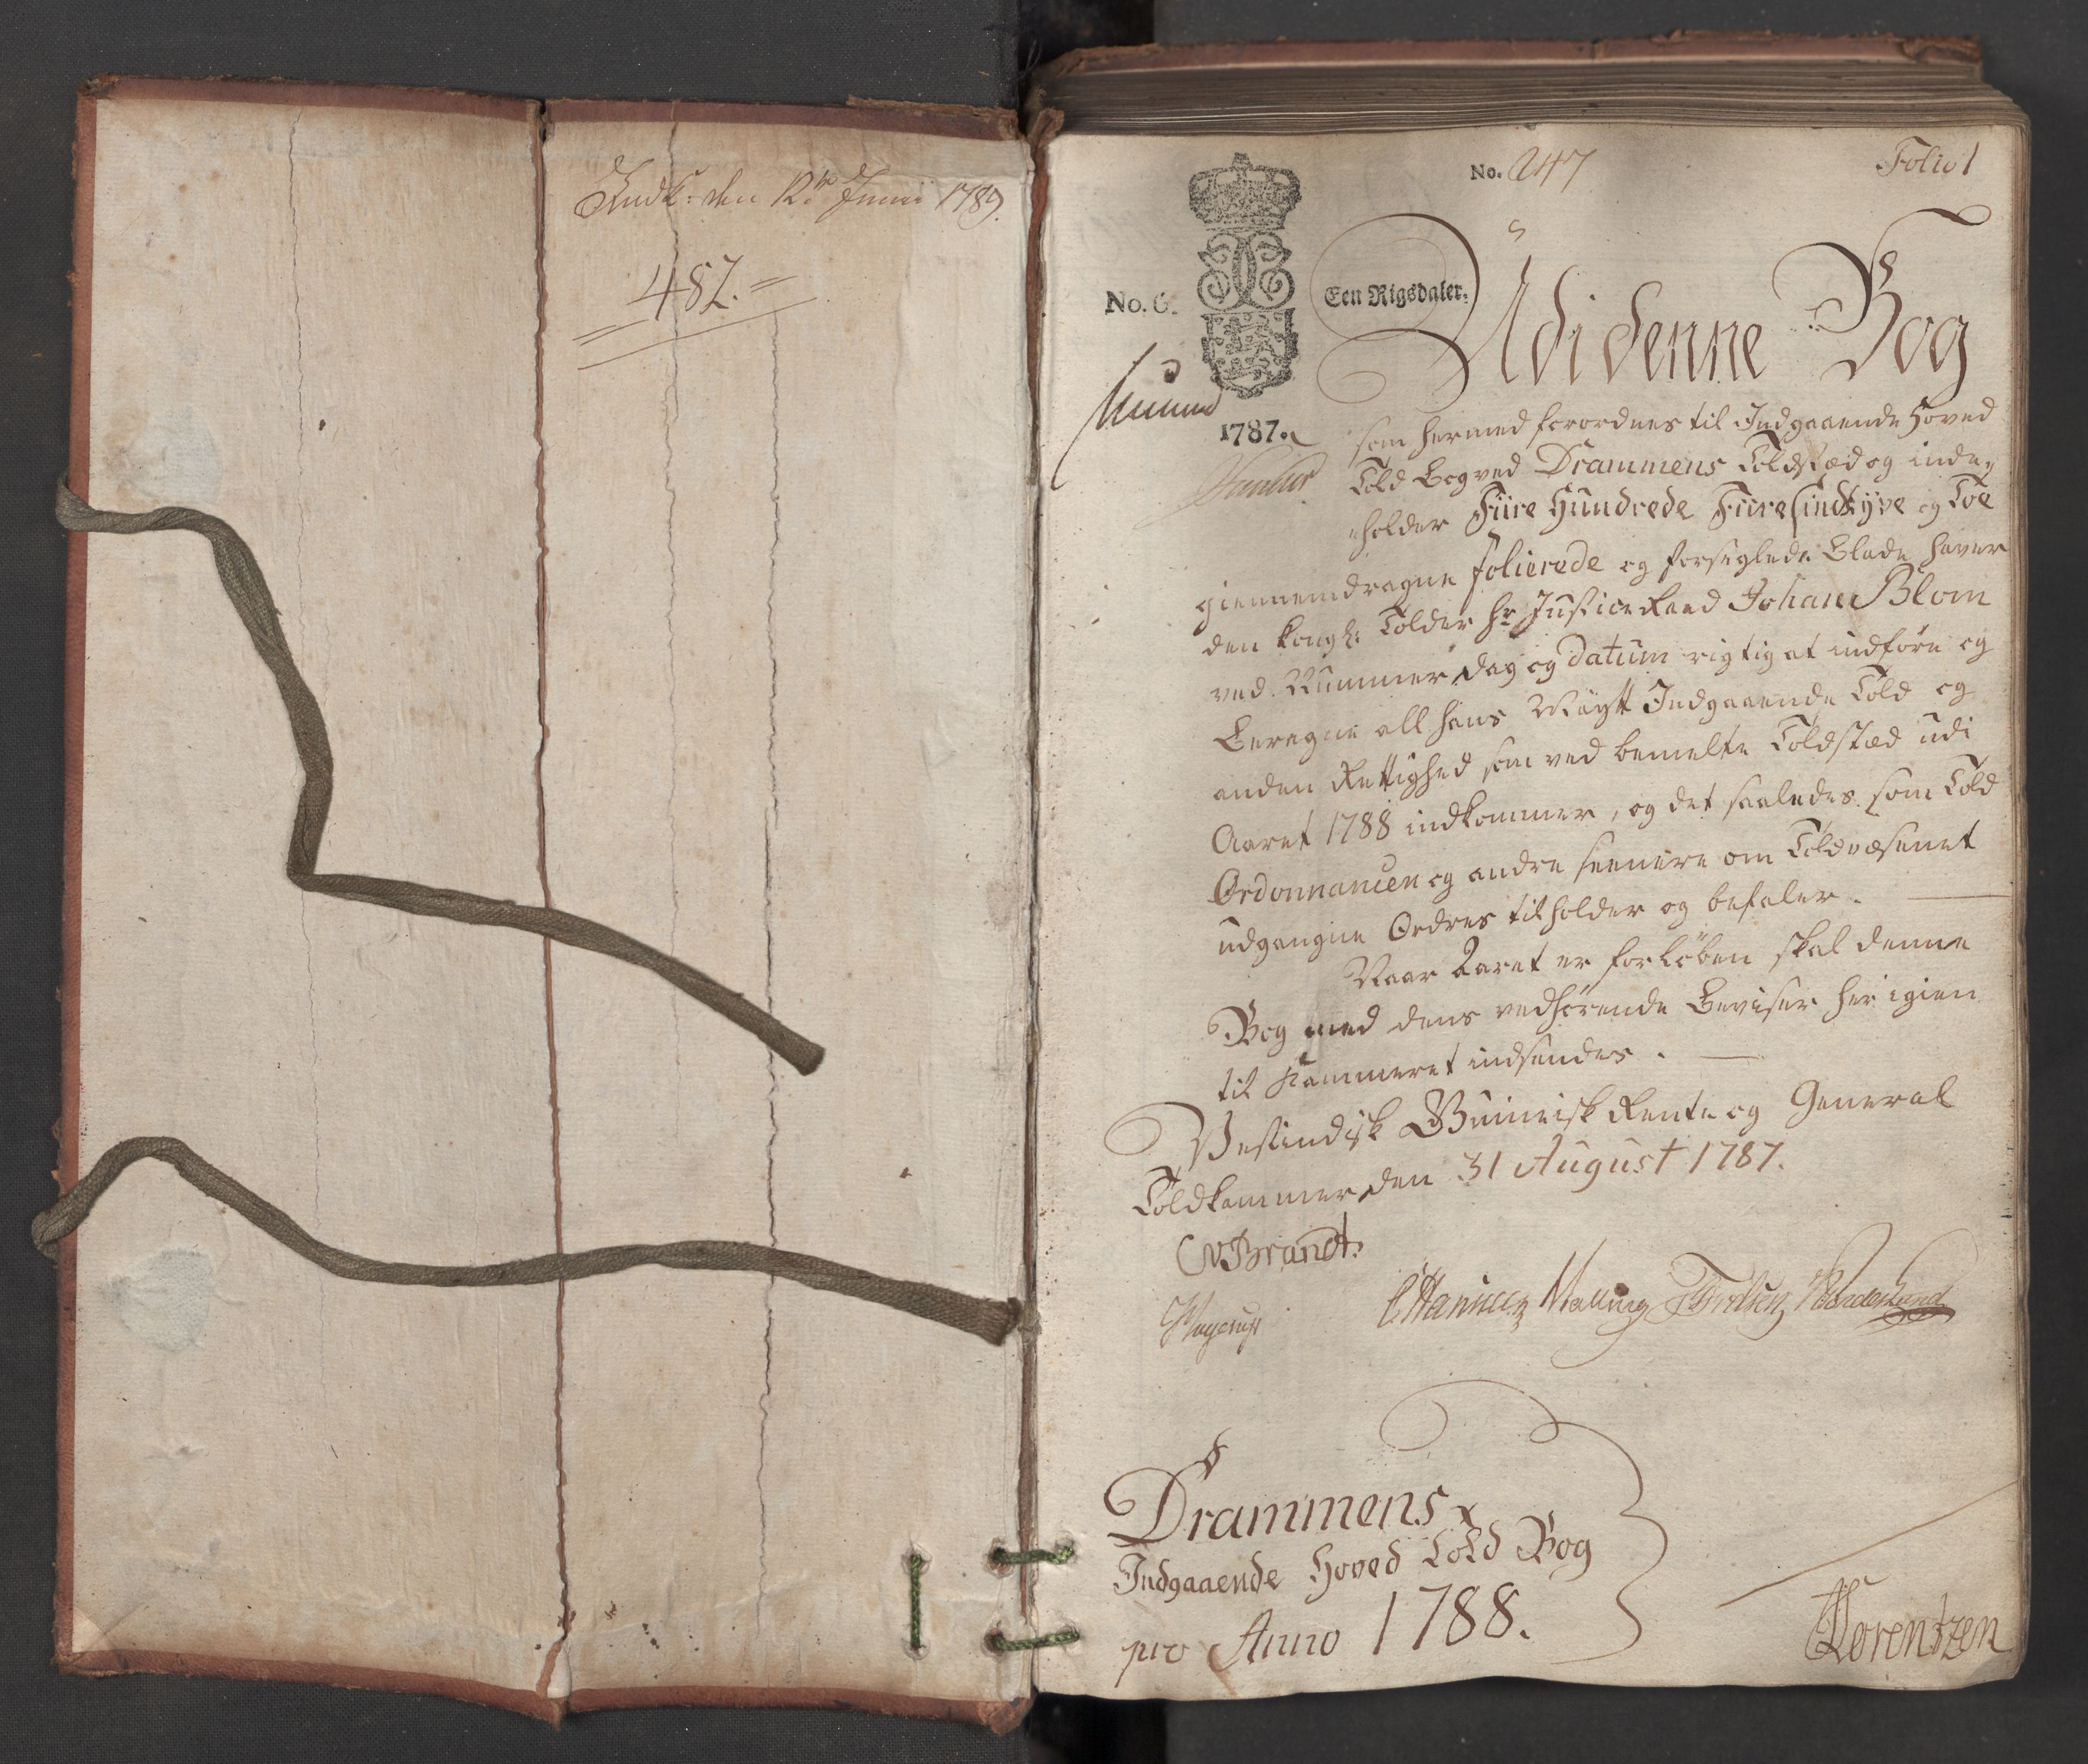 Indk: den 12te Junii 1789.
482.
No. 247
Folio 1
No. 6.
Een Rigsdaler.
1787.
Udi denne Bog
som hermed forordnes til Indgaaende Hoved
Told Bog ved Drammens Toldstæd og inde-
holder Fiire Hundrede Fiiresindstyve og Toe
giennemdragne folierede og forseglede Blade, haver
den kongl: Tolder Hr Justice Raad Johan Blom
ved Nummer Dag og Datum rigtig at indføre og
Beregne all Hans Mayst Indgaaende Told og
anden Rettighed som ved bemelte Toldstæd udi
Aaret 1788 indkommer, og det saaledes som Told
Ordonnancen og andre seenere om Toldvæsenet
udgangne Ordres tilholder og befaler.
Naar Aaret er forløben skal denne
Bog med dens vedhørende Beviser her igien
til Kammeret indsendes.
Vestindisk Guineisk Rente og General
Toldkammer den 31 August 1787.
CvBrandt.
Malling
Drammens
Indgaaende Hoved Told Bog
pro Anno 1788.
Lorentzen